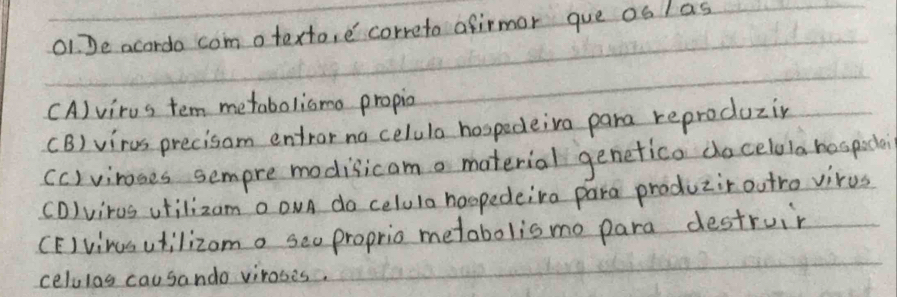 01. De acordo com o texto, é correto afirmar que os/as
(A) vírus tem metabolismo propio
(B) vírus precisam entrar na celula hospedeira para reproduzir
(C) viroses sempre modificam o material genetico da celula hospedeir
(D) vírus utilizam o DNA da celula hospedeira para produzir outro vírus
(E) vírus utilizam o seu proprio metabolismo para destruir
celulas causando viroses.